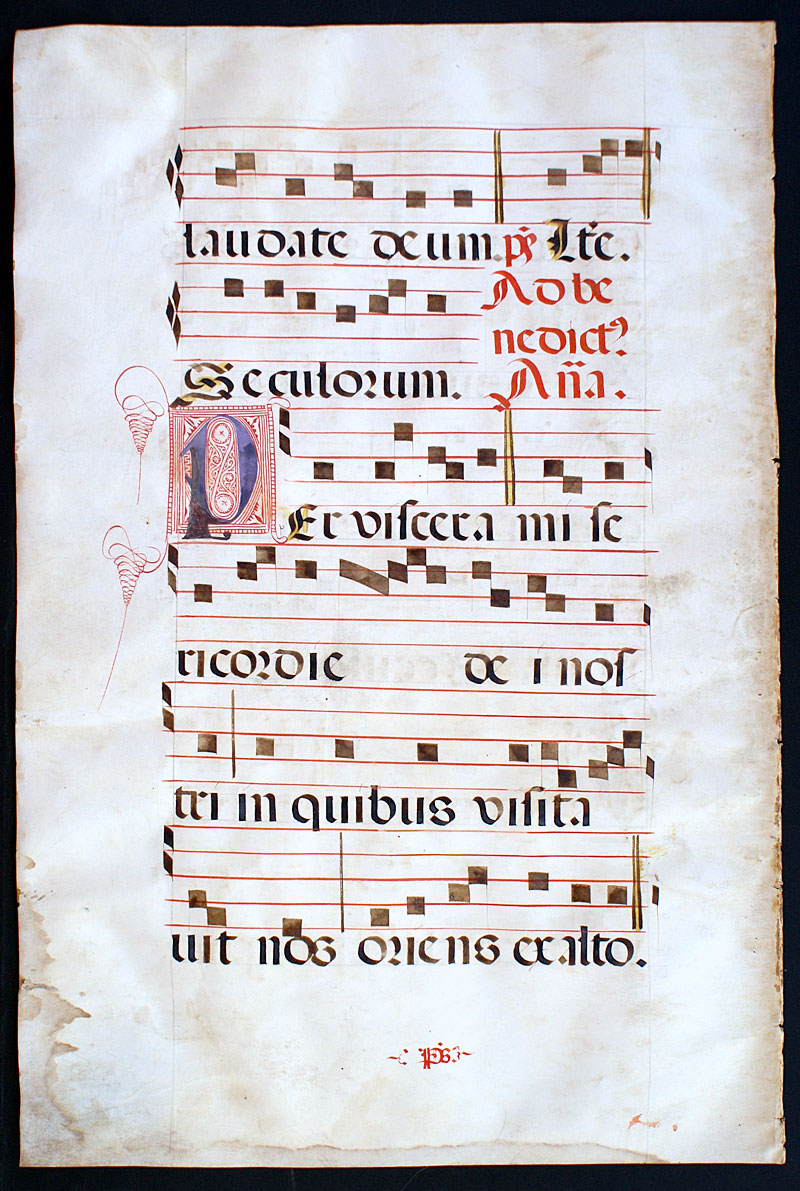 laudate deum. ps Lte.
Ad be
nedict9
Seculorum. Aña.
PEr viscera mi se
ricordie de i nos
tri in quibus visita
uit nos oriens exalto.